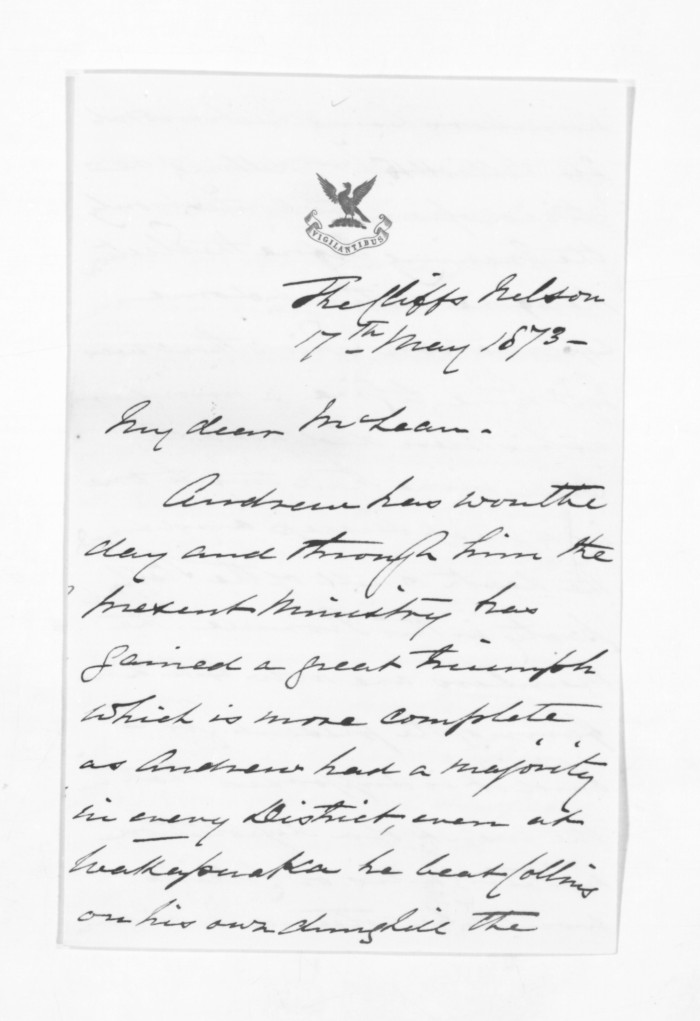 VIGILANTIBUS
The Cliffs Nelson
17th May 1873-
My dear McLean.
Andrew has won the
day and through him the
present Ministry has
gained a great triumph
which is more complete
as Andrew had a majority
in every District, even at
Wakapuaka he beat Collins
on his own dunghill the